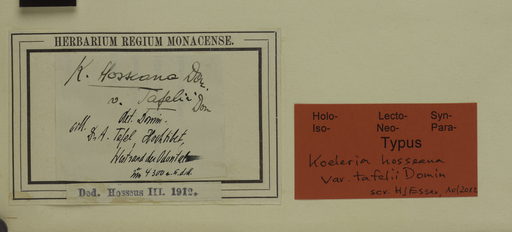 HERBARIUM REGIUM MONACENSE.
K. Hosseana Dom.
v. Tafelii Dom
det. Domin.
Dr. A. Tafel Hochtibet,
4300
Ded. Hosseus III. 1912.
Holo- Lecto- Syn-
Iso- Neo- Para-
Typus
Koeleria hosseana
var. tafelii Domin
10/2012